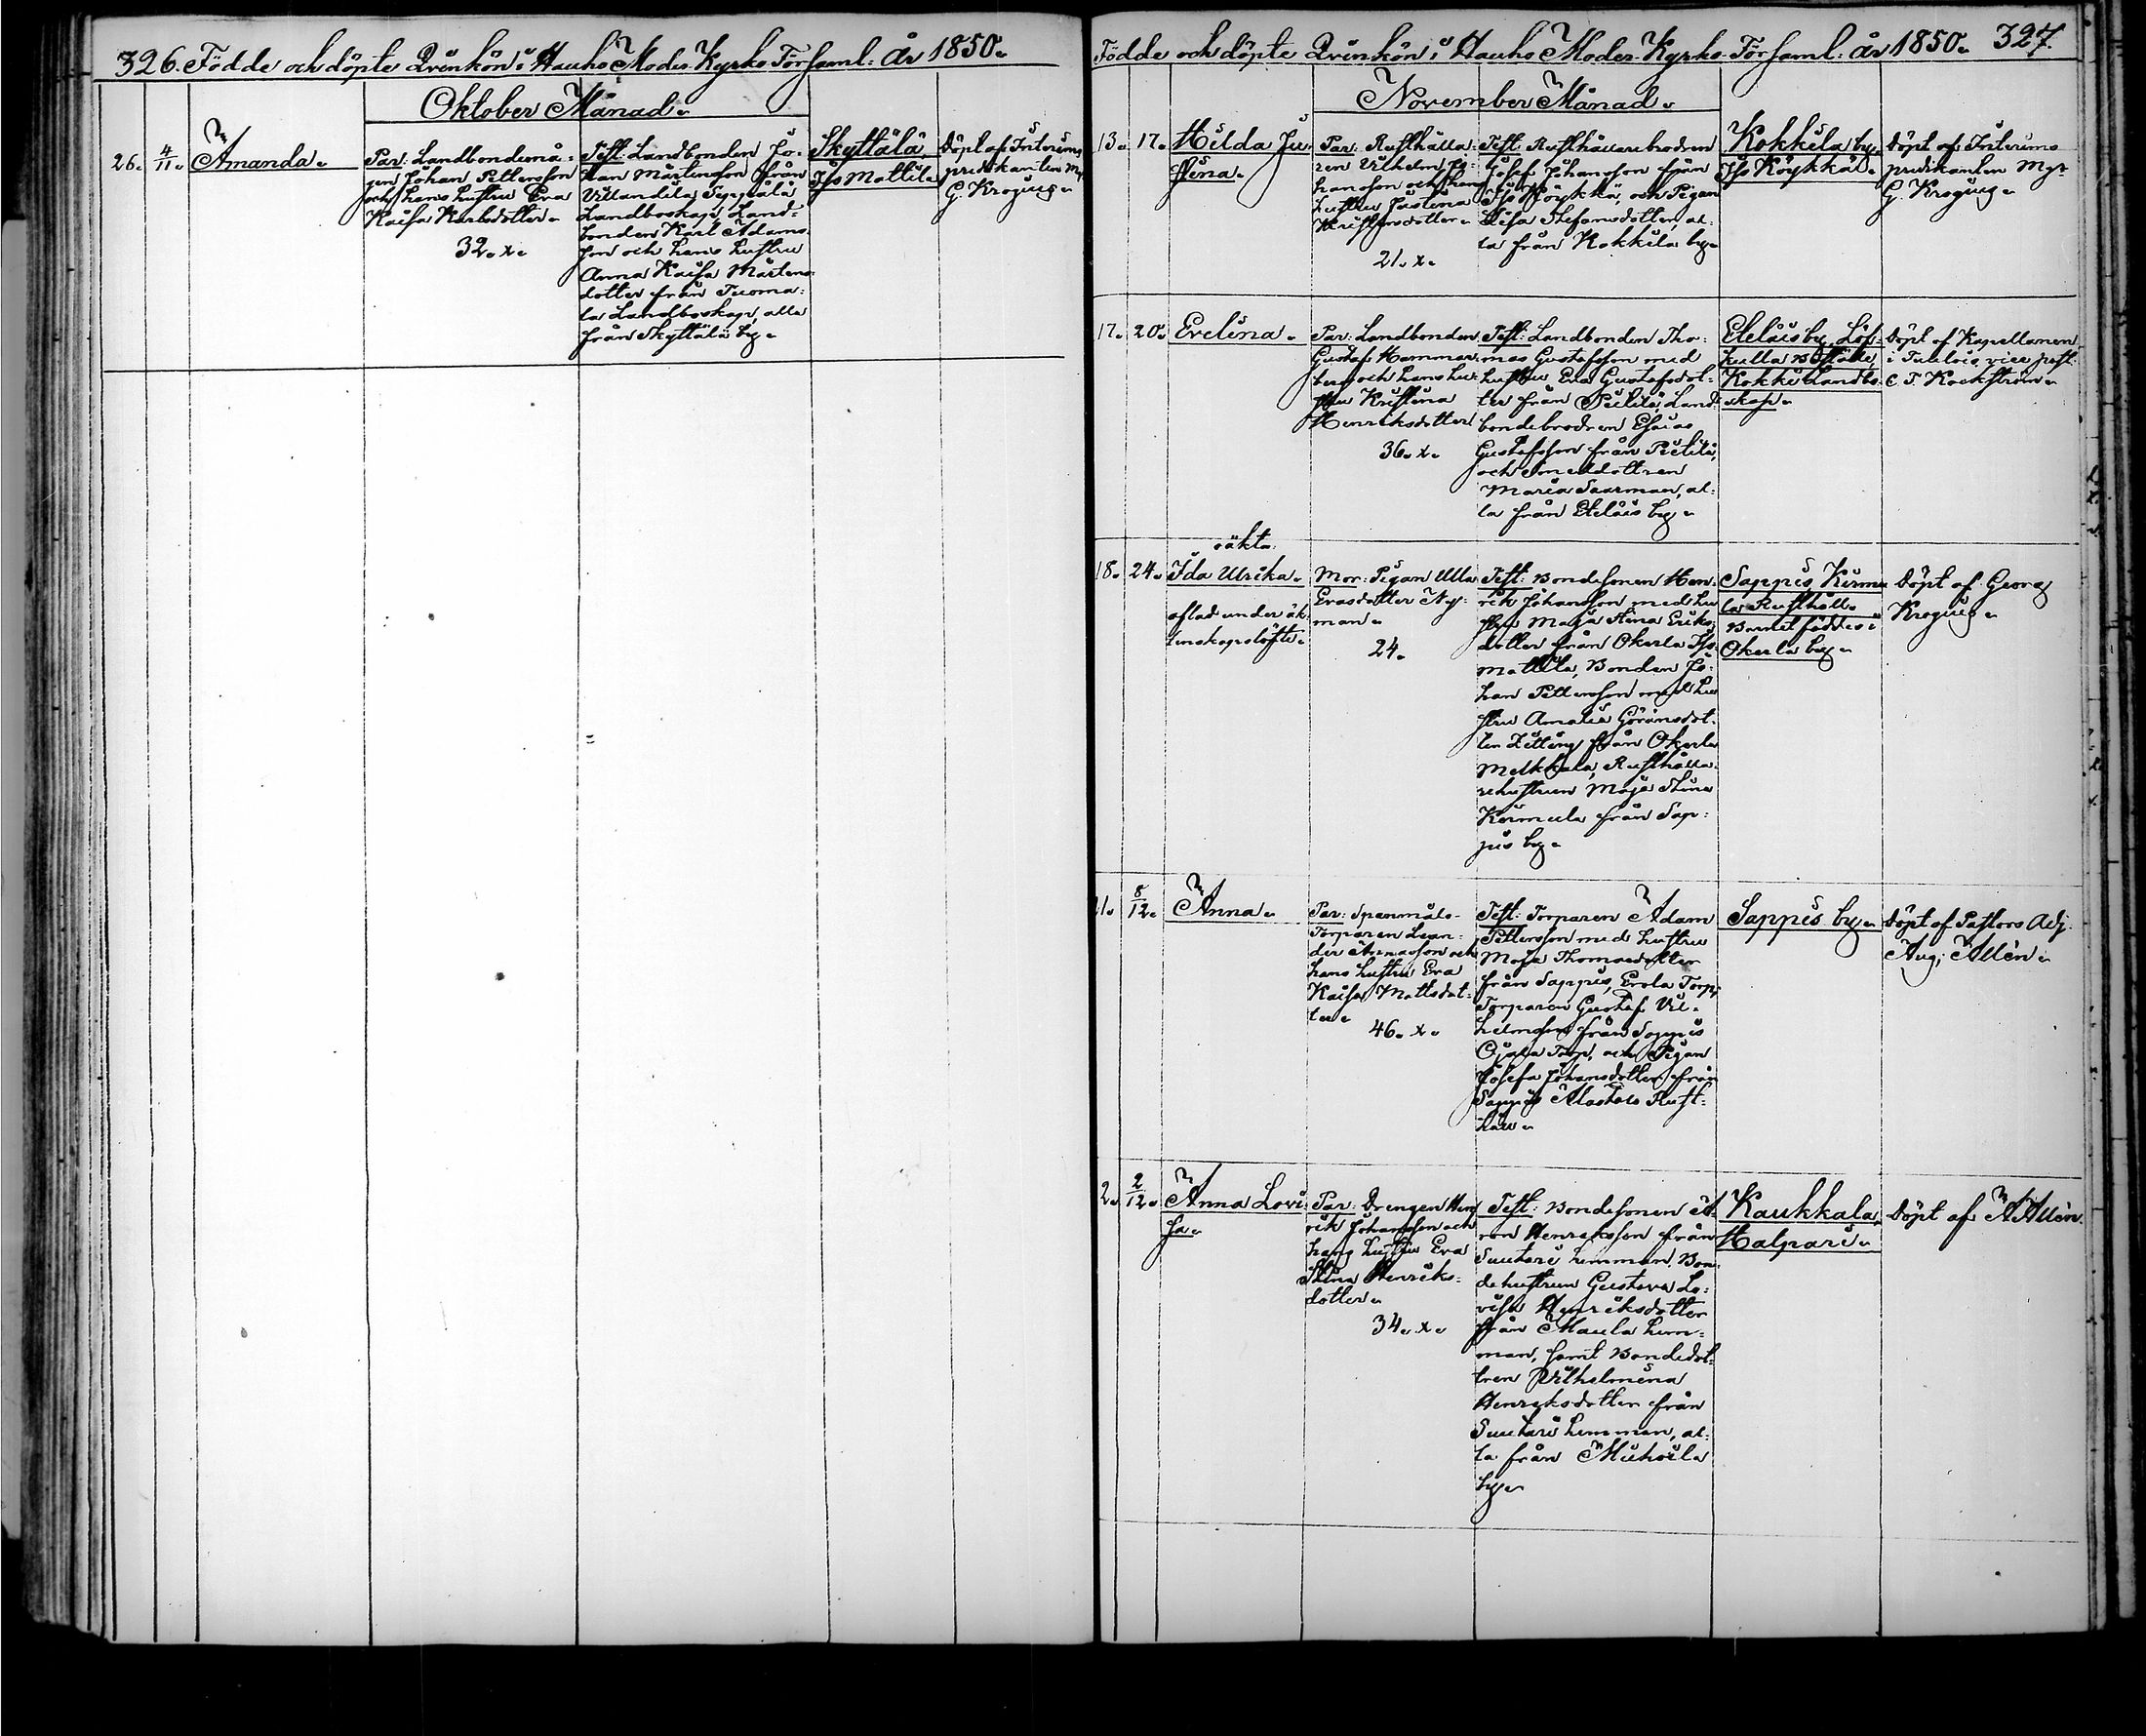 326. Födde och döpte Qvinkön i Hauho Moder Kyrko Församl: År 1850.
Oktober Månad.
26. 4/11. Amanda.
Par: Landbondemå-
gen Johan Pettersson
och hans hustru Eva
Kaisa Karlsdotter.
32. x.
Test: Landbonden Jo-
han Mårtensson från
Villandila Seppälä
Landboskap, Land-
bonden Karl Adams-
son och hans hustru
Anna Kaisa Mårtens-
dotter från Tuoma-
la Landboskap, alla
från Skyttälä by.
Skyttälä,
Iso Mattila.
Döpt af Interims
predikanten M
G. Krogius.
Födde och döpte Qvinkön i Hauho Moder-Kyrko-Församl. år 1850. 327.
November Månad.
13. 17. Hilda Ju-
stina.
Par: Rusthålla-
ren Vilhelm Jo-
hansson och hans
hustru Justina
Kristersdotter.
21. x.
Test: Rusthållarebrodren
Josef Johansson från
Iso Köykkä, och Pigan
Lisa Stefansdotter, al-
la från Kokkila by.
Kokkila by.
Iso Köykkä.
Döpt af Interims
predikanten Mgr
G. Krogius.
17. 20. Evelina.
Par: Landbonden
Gustaf Hammar-
berg och hans hu-
stru Kristina
Henriksdotter
36. x.
Test: Landbonden Tho-
mas Gustafsson med
hustru Eva Gustafsdot-
ter från Pietilä, Land-
bondebrodren Esaias
Gustafsson från Pietilä,
och Smeddottren
Maria Saarman, al-
la från Eteläis by.
Eteläis by Löf-
kulla
Kokko Landbo-
skap.
Döpt af Kapellanen
i Tulois, vice past:
C. F. Kockström.
18. 24. oäkta:
Ida Ulrika.
aflad under äk-
tenskapslöfte.
Mor: Pigan Ulla
Evasdotter Ny-
man.
24.
Test: Bondesonen Hen-
rik Johansson med hu
stru Maja Stina Eriks-
dotter från Okerla Iso
Mattila, Bonden Jo-
han Pettersson med hu
stru Amalia Göransdot-
ter Zitting från Okerla
Meikkala, Rusthålla-
rehustrun Maja Stina
Kirmula från Sap-
pis by.
Sappis Kirmu
la Rusthåll.
Barnet föddes i
Okerla by.
Döpt af Georg
Krogius.
21. 8/12. Anna.
Par: Spanmåls-
Torparen Lean-
der Annasson och
hans hustru Eva
Kaisa Mattsdot-
ter.
46. x.
Test: Torparen Adam
Pettersson med hustru
Maja Thomasdotter
från Sappis, Erola Torp,
Torparen Gustaf Vil-
helmsson från Sappis
Ojala Torp, och Pigan
Josefa Johansdotter från
Sappis Alastalo Rust-
håll.
Sappis by.
Döpt af Pastors Adj.
Aug: Allén.
2. 2/12. Anna Lovi-
sa.
Par: Drengen Hen
rik Johansson och
hans hustru Eva
Stina Henriks-
dotter.
34. x.
Test: Bondesonen
Henriksson från
Suutari hemman, Bon-
dehustrun Gustava Lo-
visa Henriksdotter
från Maula hem-
man, samt Bondedot-
tren Vilhelmina
Henriksdotter från
Suutari hemman, al-
la från Miehoila
by.
Kaukkala,
Halpari.
Döpt af A Allén.